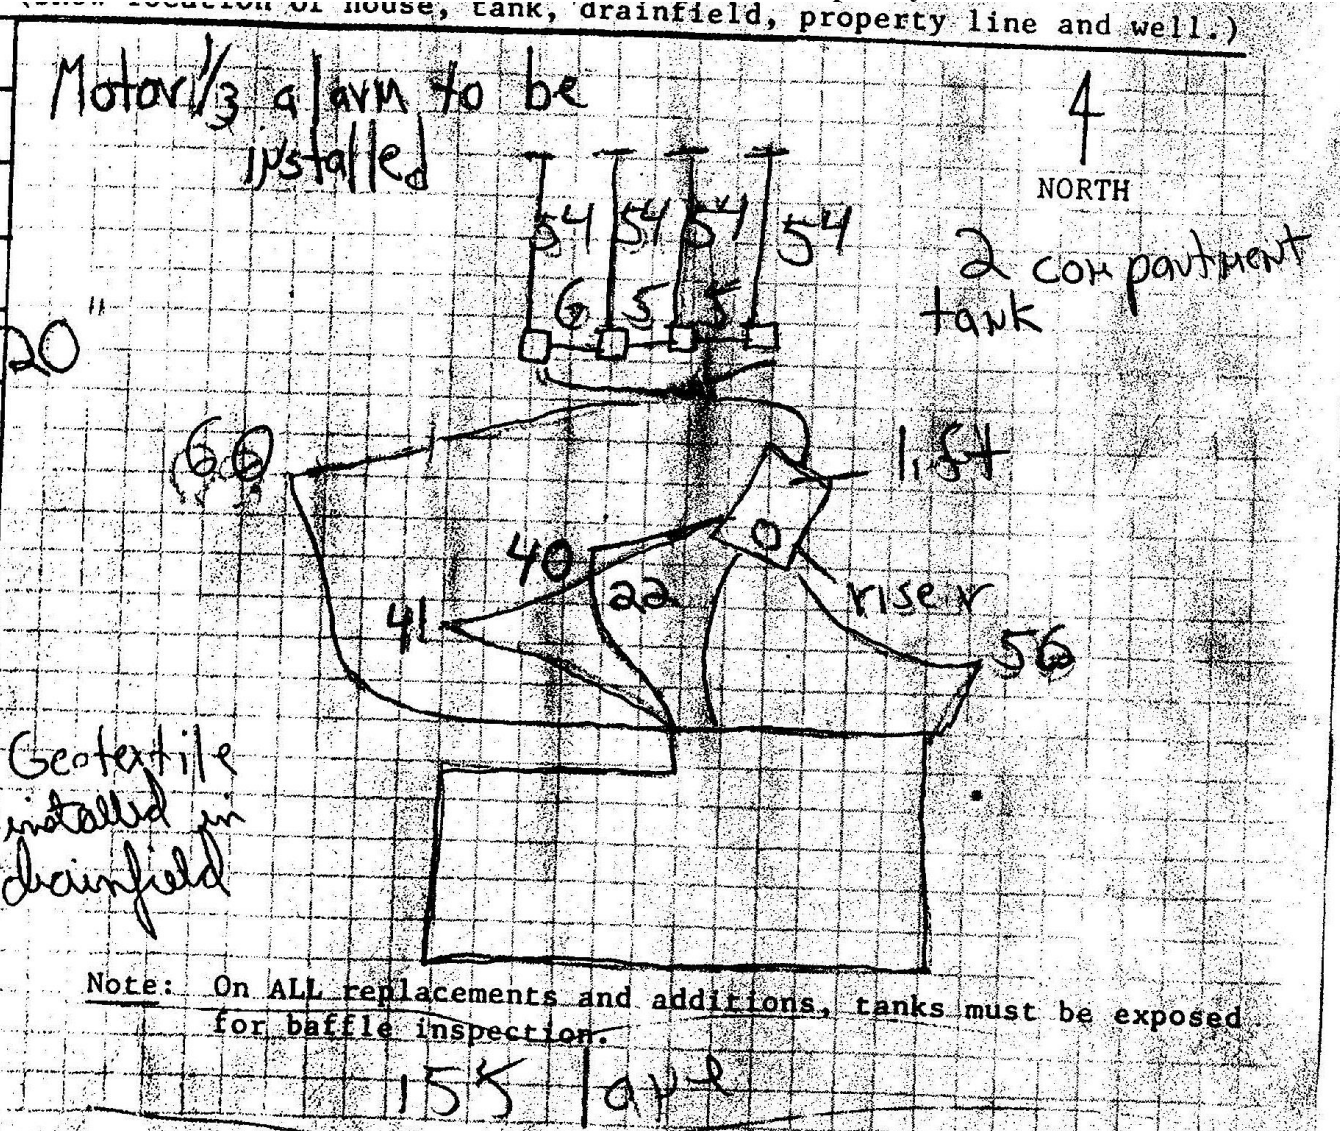 (Show location of house, tank, drainfield, property line and well.)
Motor 1/3 alarm to be
installed
NORTH
2 compartment
tank
54 54 54 54
6 5 5
20"
60
lift
40
22
41
riser
56
Geotextile
installed in
drainfield
Note: On ALL replacements and additions, tanks must be exposed
for baffle inspection.
155 lane